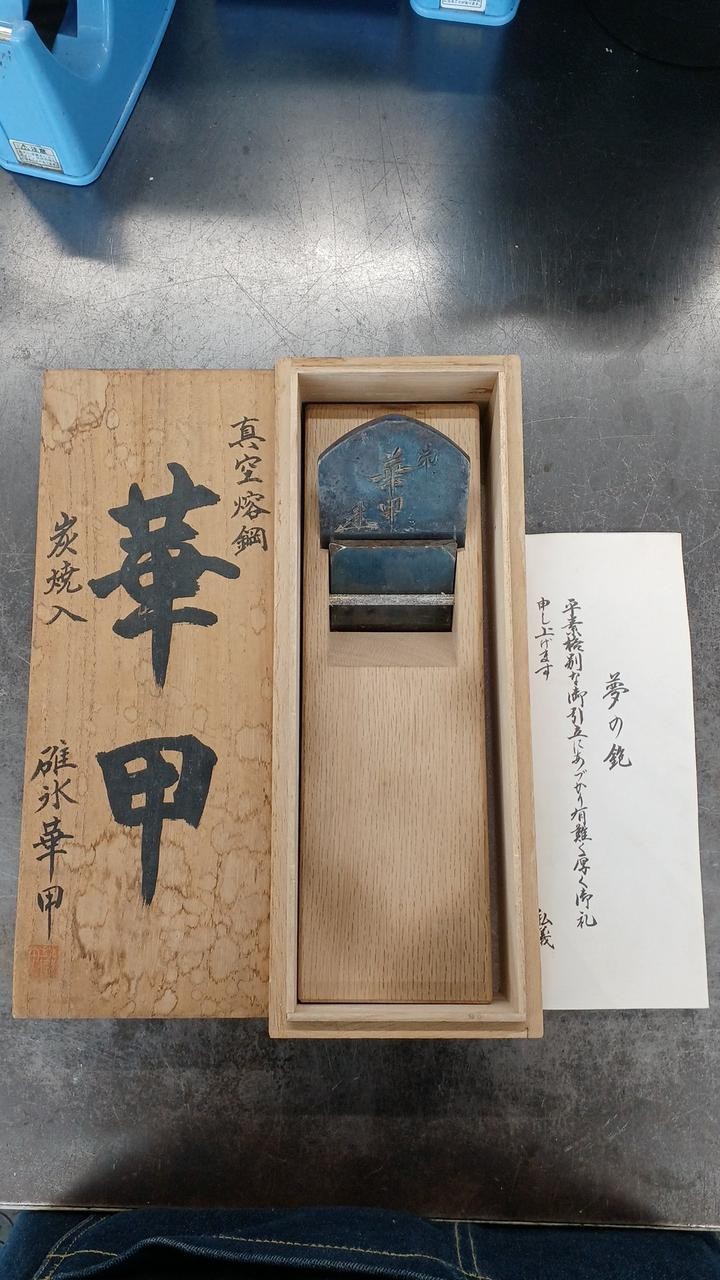 真空熔鋼
華甲
炭焼入
碓氷華甲
華甲
夢の鉋
平素格別な御引立にあづかり有難く厚く御礼
申し上げます
私義
注意